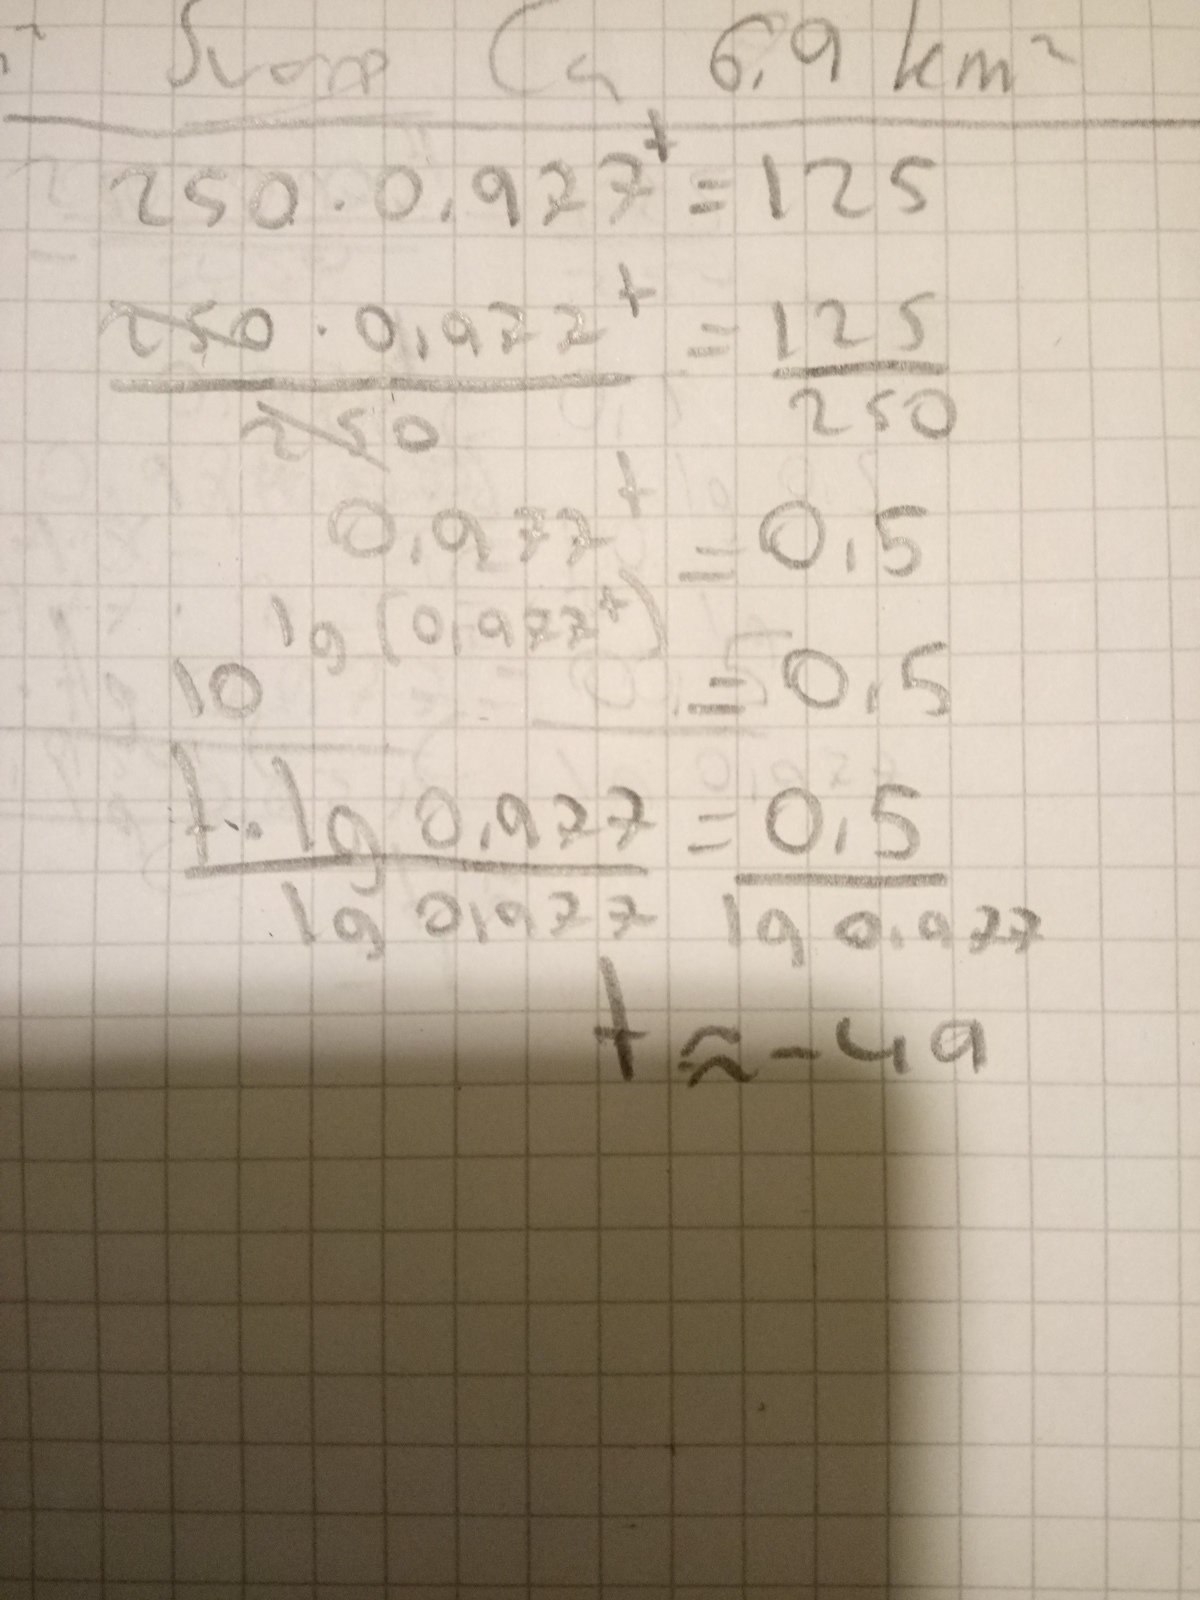 Svar: Ca 6,9 km²
250 · 0,977^t = 125
250 · 0,977^t / 250 = 125 / 250
0,977^t = 0,5
10^lg(0,977^t) = 0,5
t · lg 0,977 / lg 0,977 = 0,5 / lg 0,977
t ≈ -49